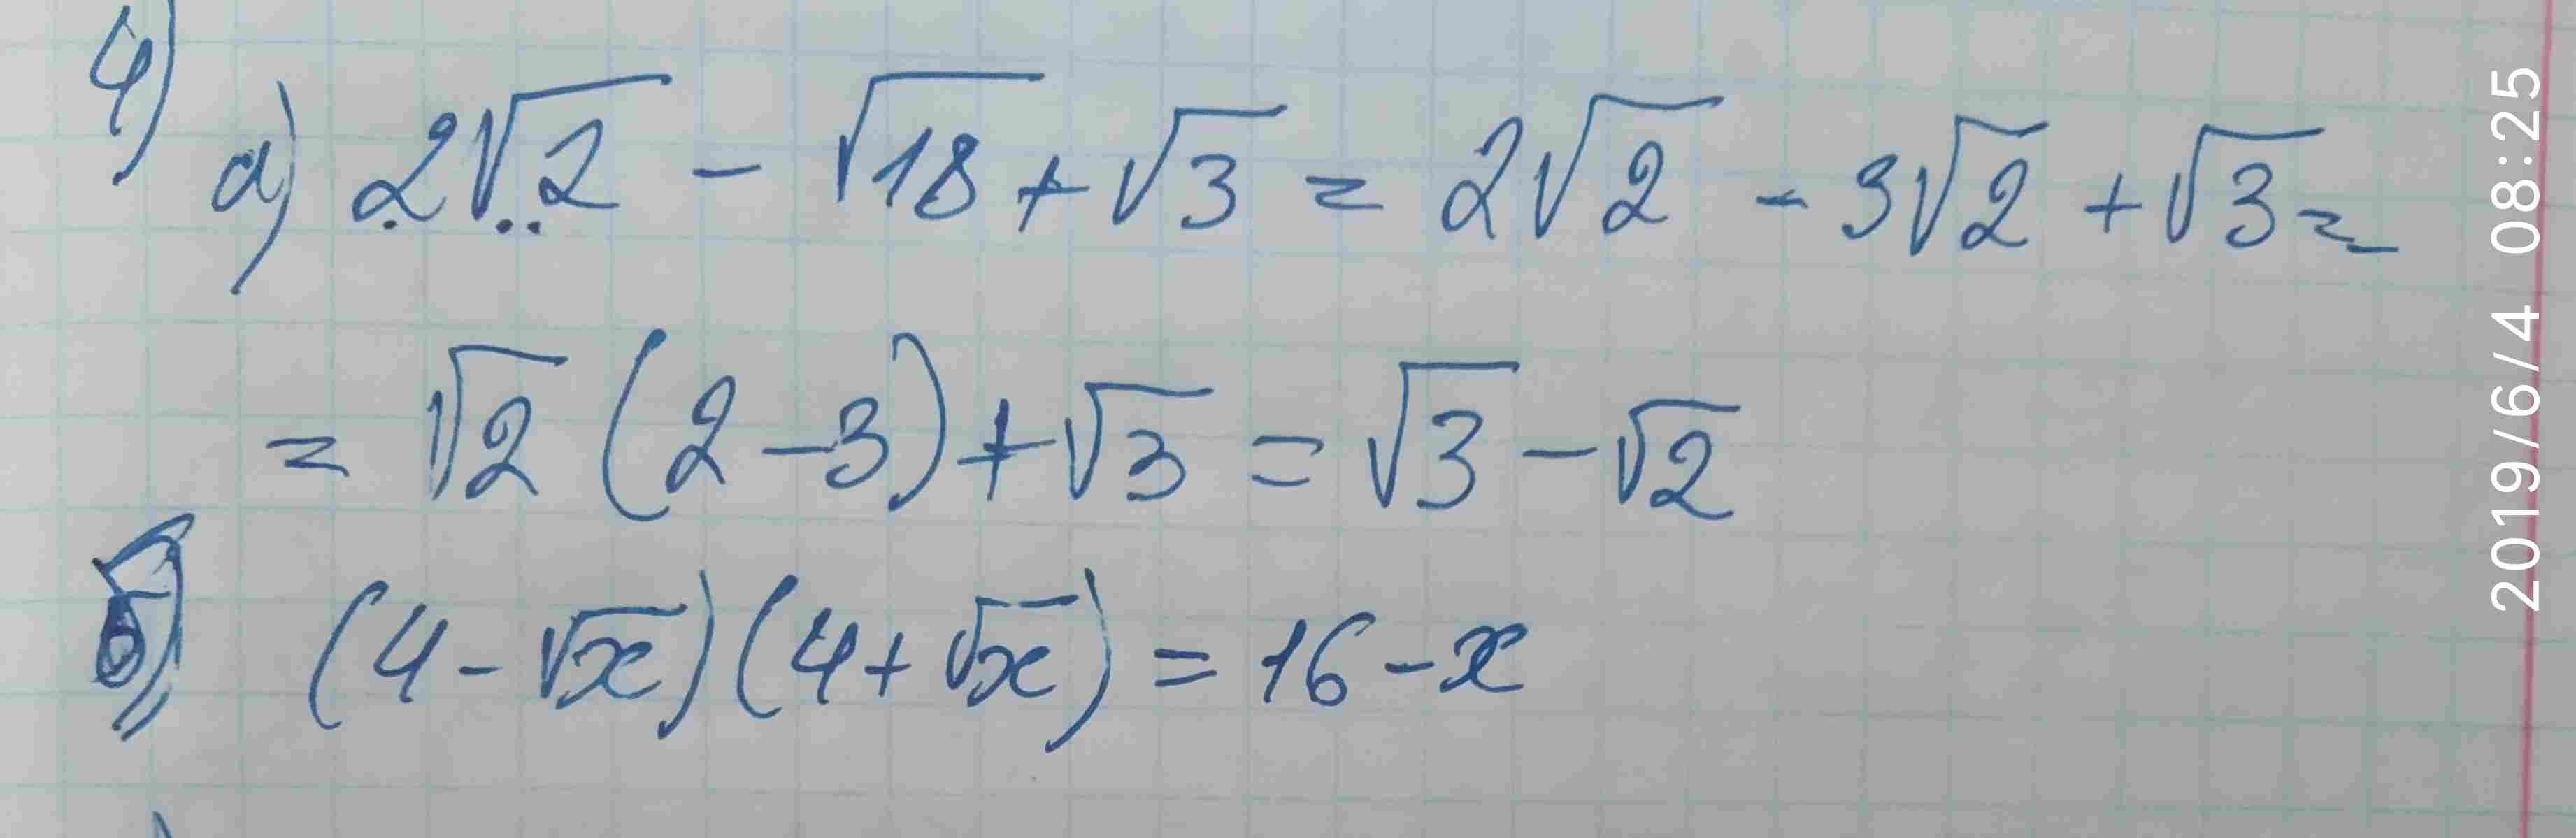 4)
а) 2√2 - √18 + √3 = 2√2 - 3√2 + √3 =
= √2 (2-3) + √3 = √3 - √2
б) (4-√x)(4+√x) = 16-x
2019/6/4 08:25